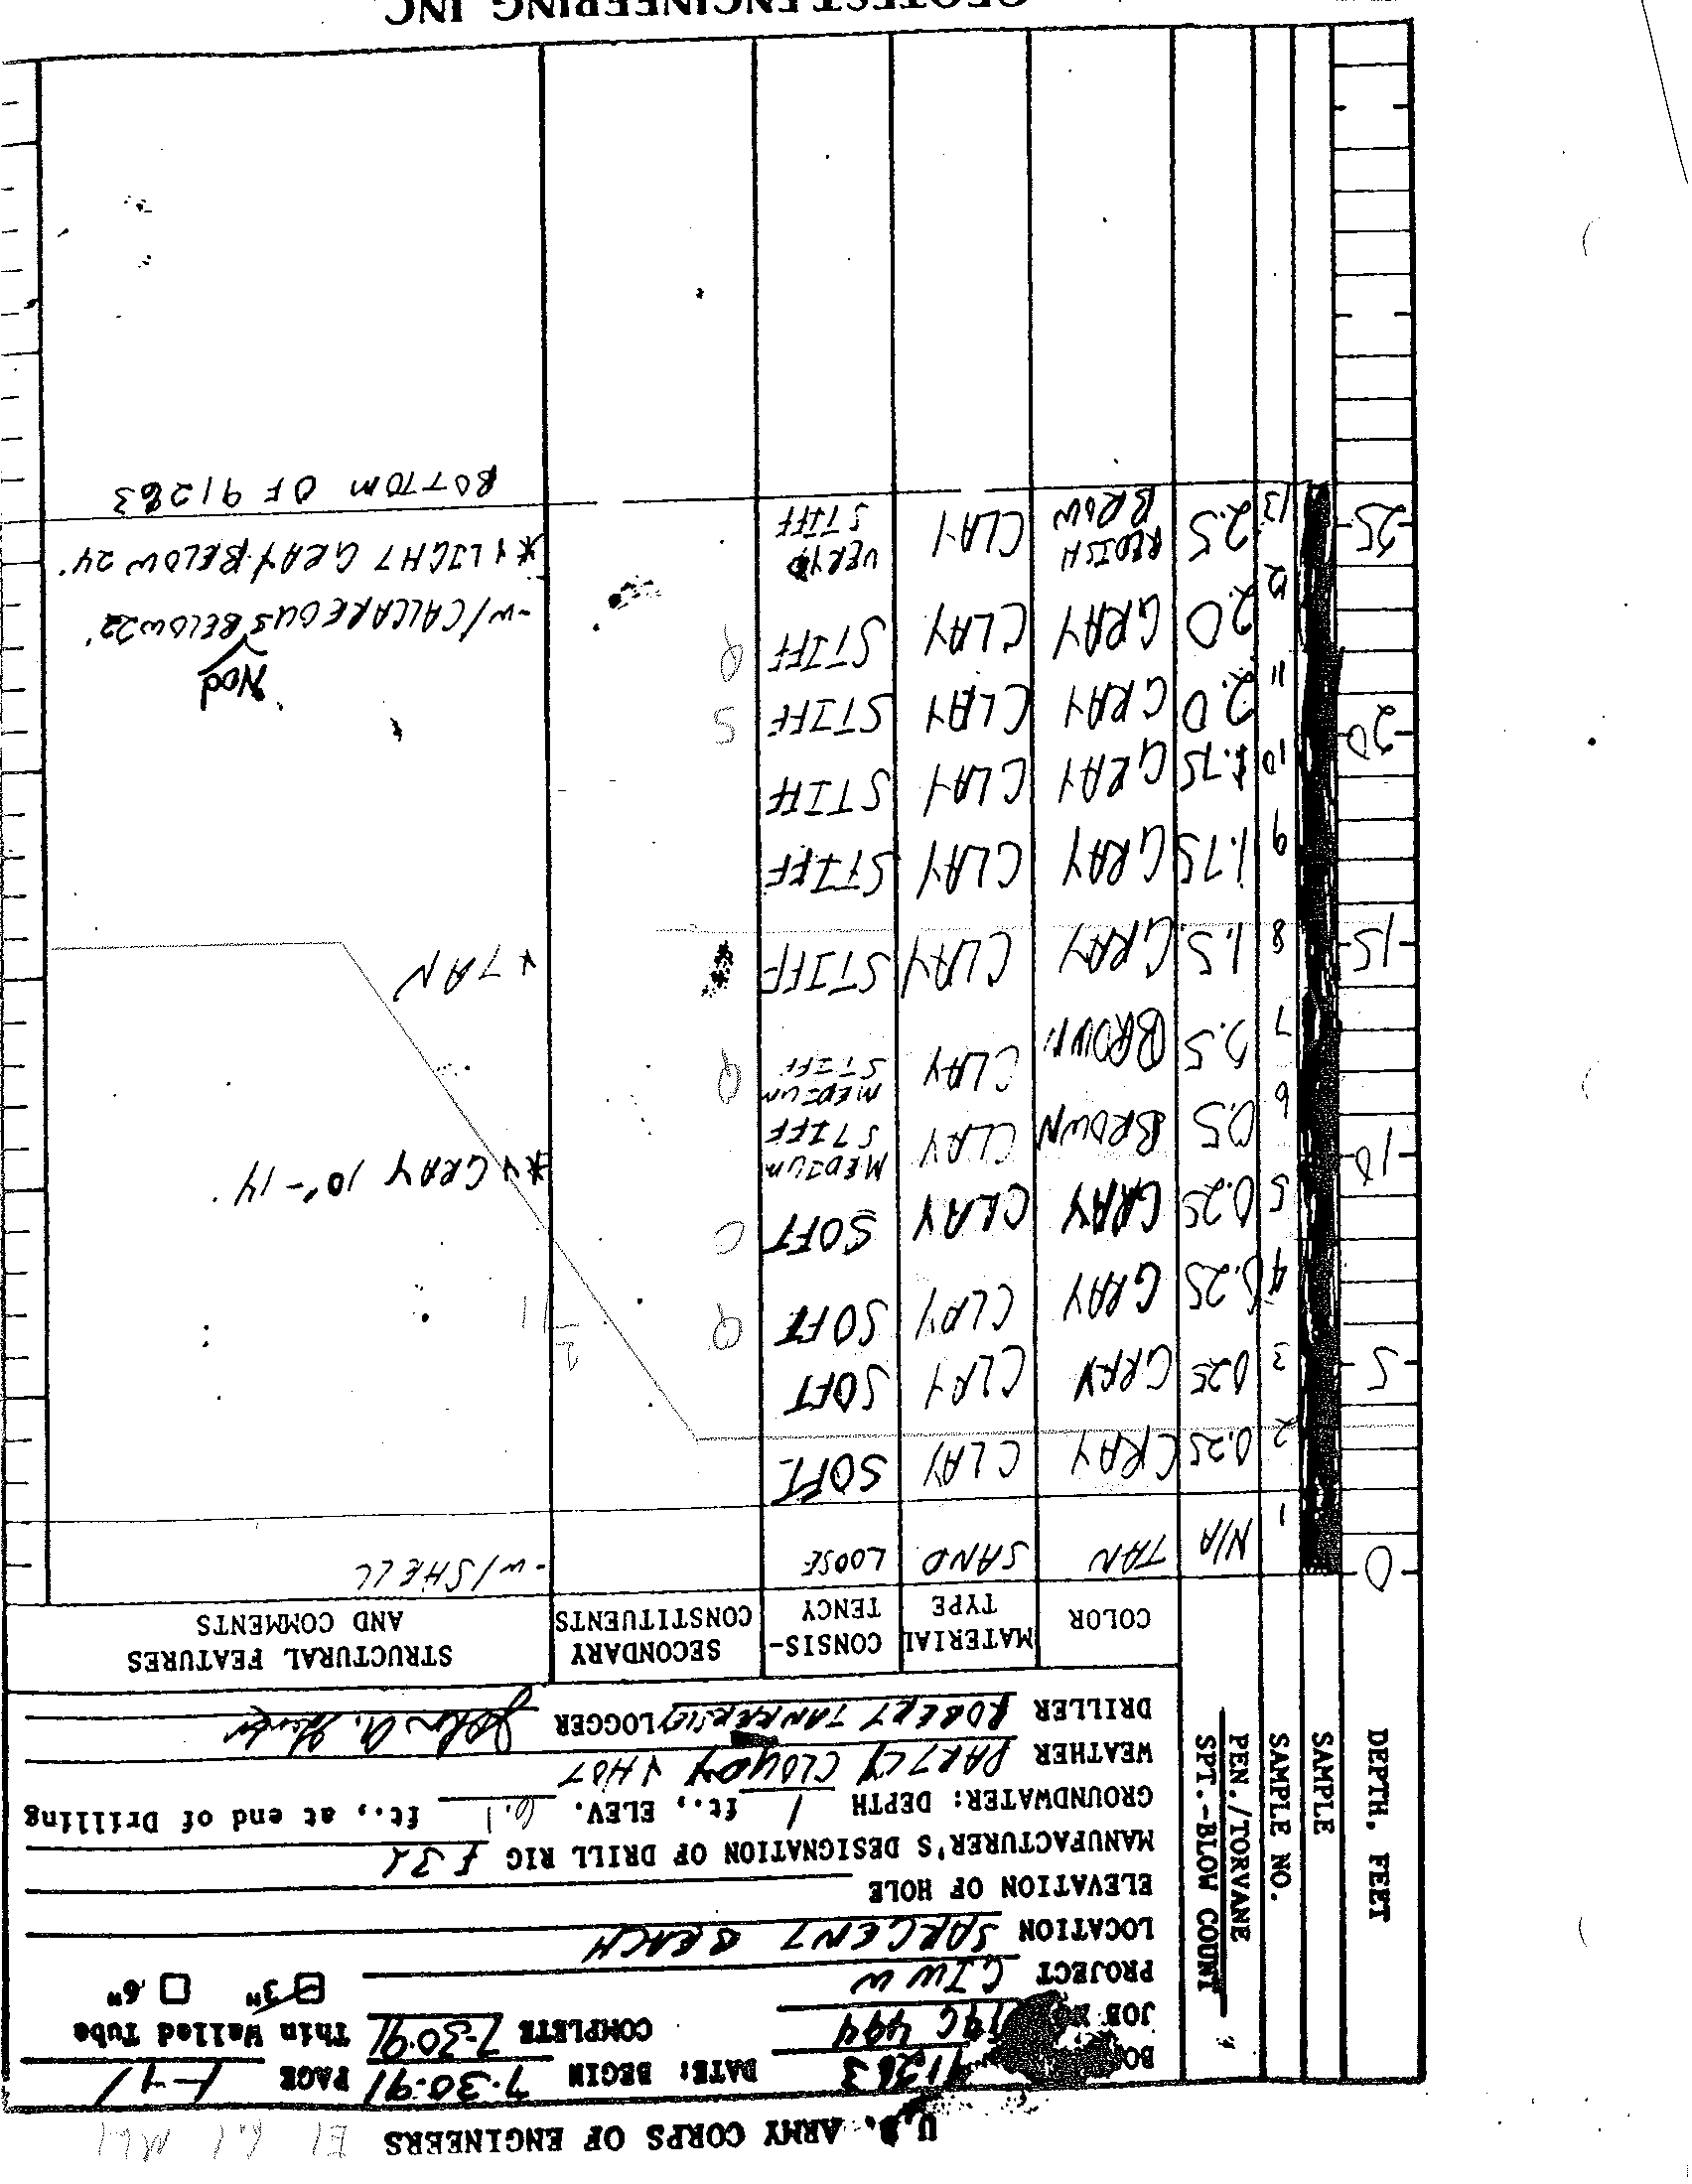 U.S. ARMY CORPS OF ENGINEERS El 6.1 MLT
91-283 DATE: BEGIN 7-30-91 PAGE 1-1
JOB 19G 494 COMPLETE 7-30-91 Thin Walled Tube
PROJECT GIWW 3" 6"
LOCATION SARGENT BEACH
ELEVATION OF HOLE
MANUFACTURER'S DESIGNATION OF DRILL RIG
GROUNDWATER: DEPTH 1 ft., ELEV. 6.1 ft., at end of Drilling
WEATHER PARTLY CLOUDY & HOT
DRILLER ROBERT TANKERSLEY LOGGER John A.
DEPTH, FEET
SAMPLE
SAMPLE NO.
PEN./TORVANE
SPT.-BLOW COUNT
COLOR
MATERIAL TYPE
CONSIS-TENCY
SECONDARY CONSTITUENTS
STRUCTURAL FEATURES AND COMMENTS
0 1 N/A TAN SAND LOOSE -W/SHELL
2 0.25 GRAY CLAY SOFT
5 3 0.25 GRAY CLAY SOFT
4 0.25 GRAY CLAY SOFT Q
5 0.25 GRAY CLAY SOFT C
*& GRAY 10'-14'
10 6 0.5 BROWN CLAY MEDIUM STIFF
7 0.5 BROWN CLAY MEDIUM STIFF Q
15 8 1.5 GRAY CLAY STIFF * TAN
9 1.75 GRAY CLAY STIFF
10 1.75 GRAY CLAY STIFF
20 11 2.0 GRAY CLAY STIFF S
Nod
12 2.0 GRAY CLAY STIFF Q -W/CALCAREOUS BELOW 22'
25 13 2.5 REDISH BROW CLAY VERY STIFF *& LIGHT GRAY BELOW 24'
BOTTOM OF 91283
GEOTEST ENGINEERING INC.